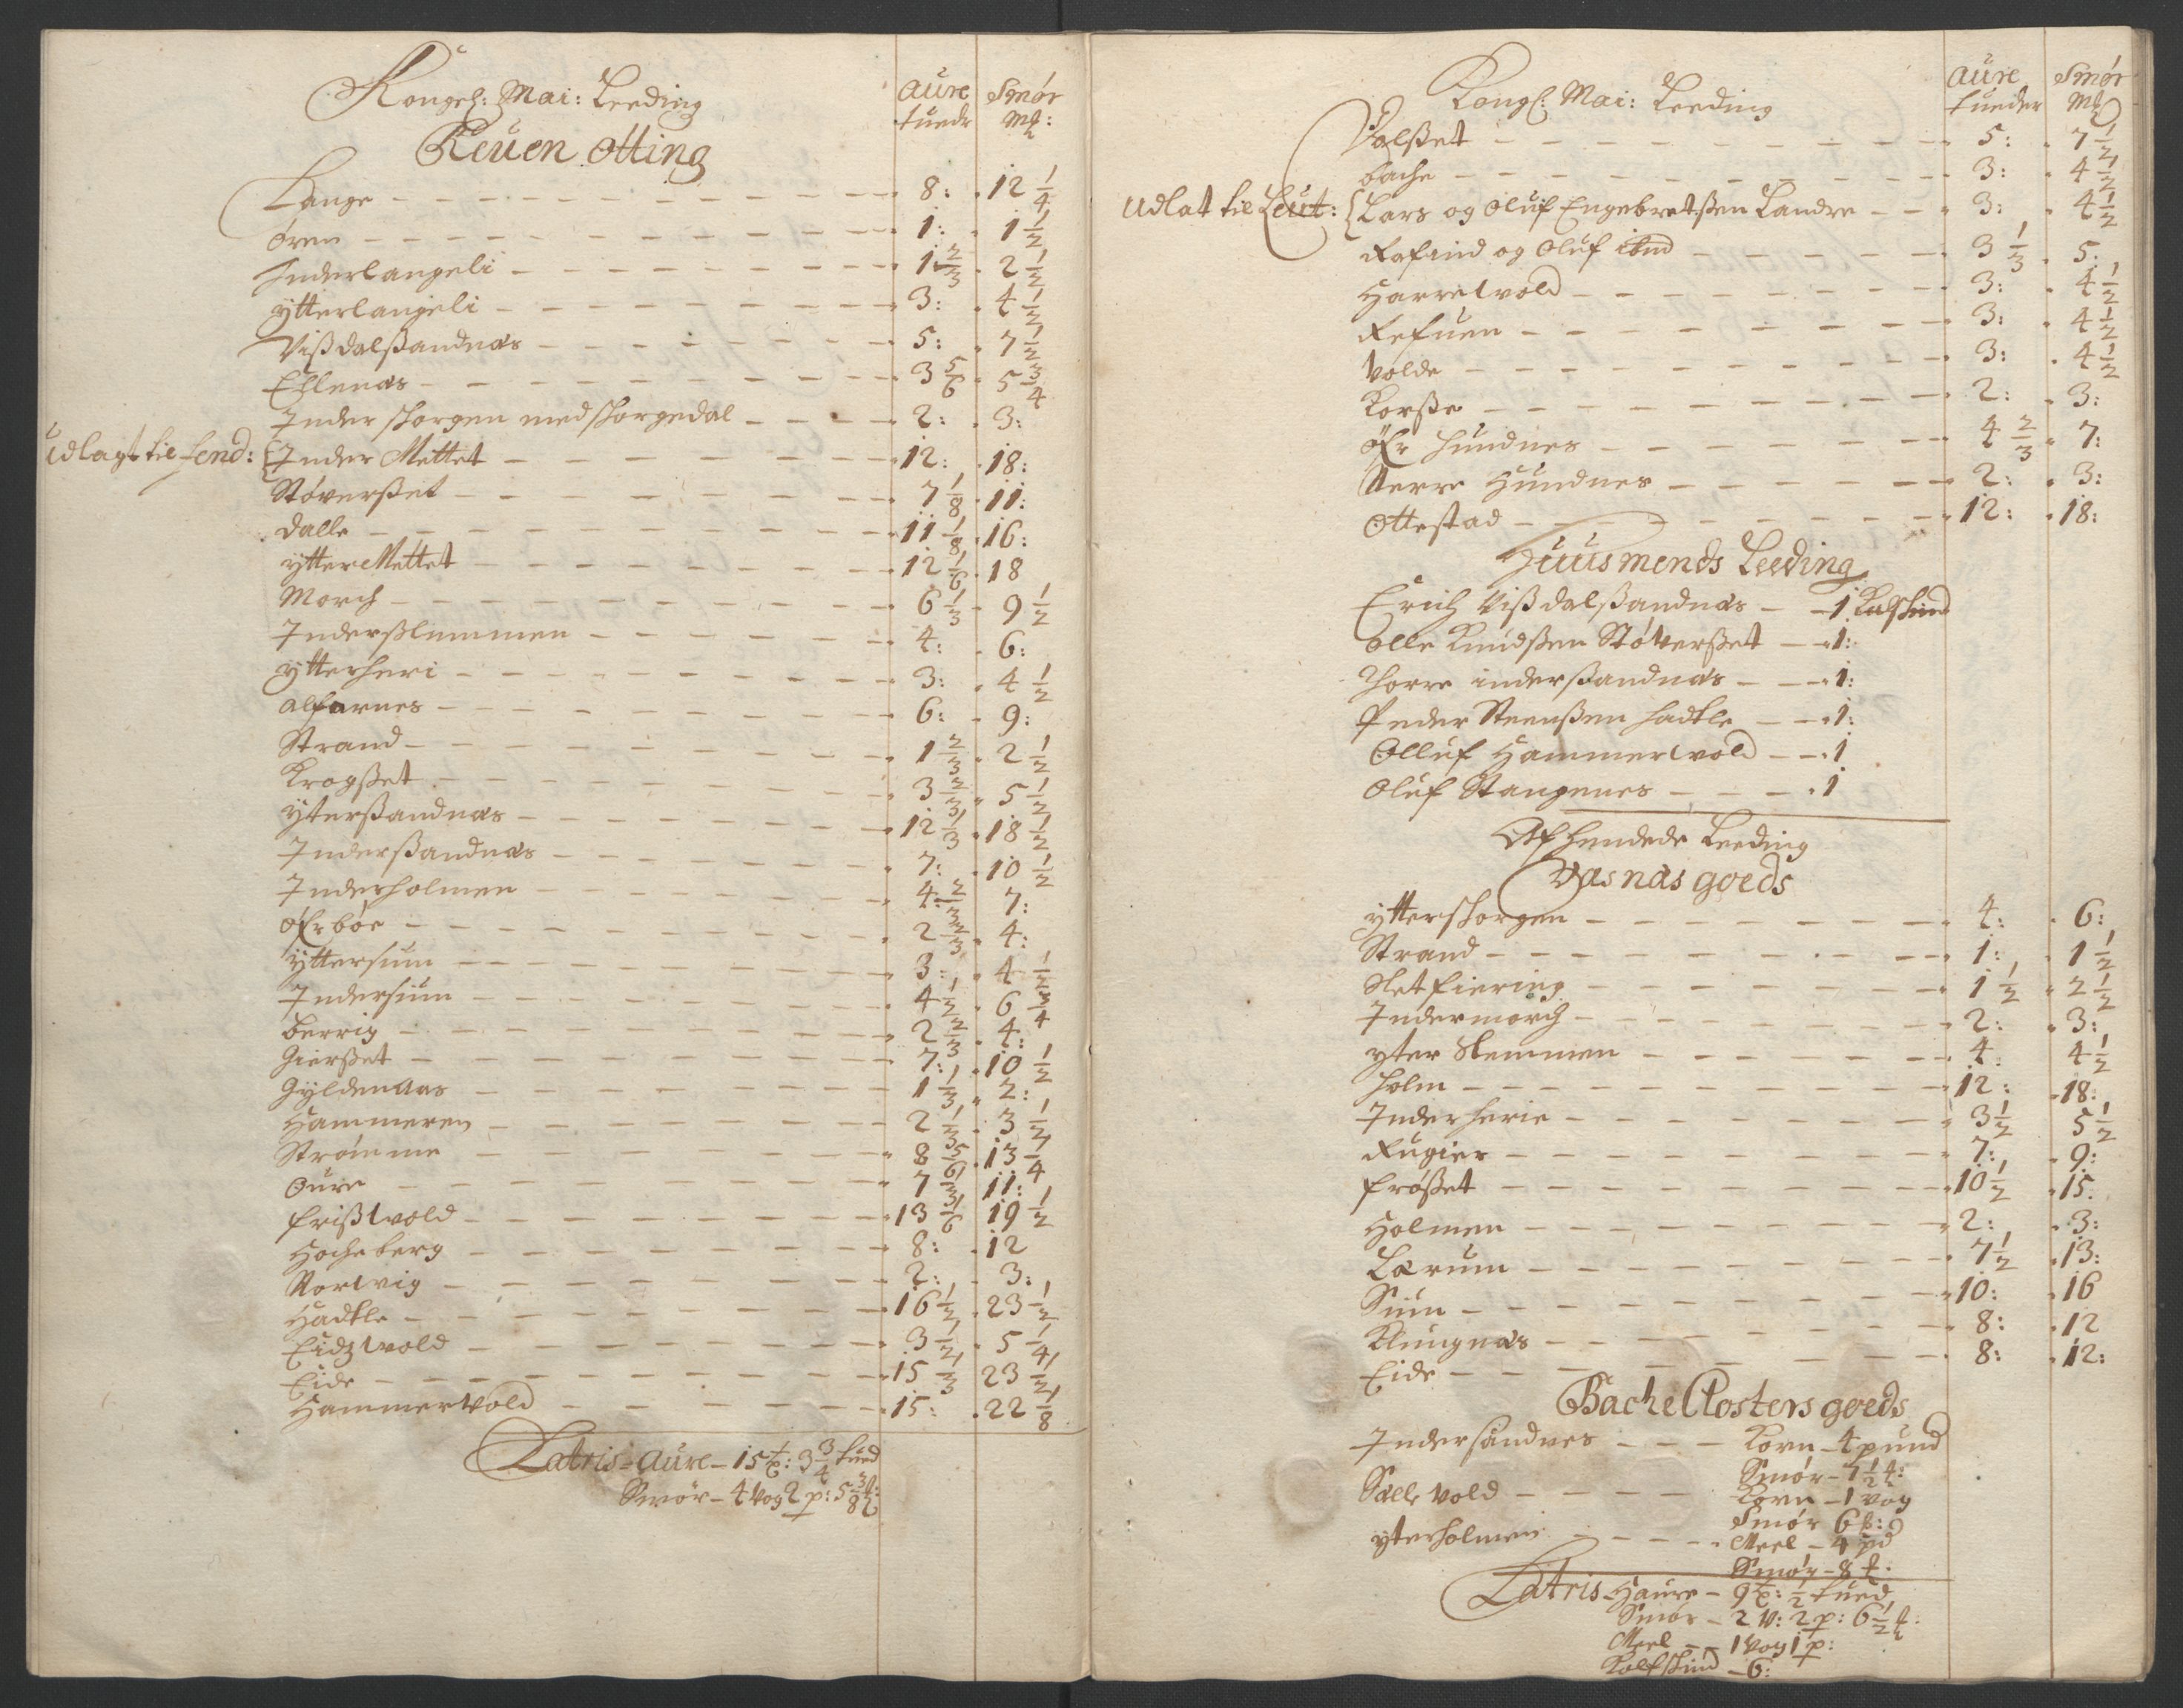 Kongel: Mai: Leeding
aure Smør
tuedr M₰:
Reuen Otting
Lange - 8: 12 1/4
Øren - 1: 1 1/2
Inderlangeli - 1 2/3 2 1/2
ytterlangeli - 3: 4 1/2
Vißdalßandnæs - 5: 7 1/2
Ellenæs - 3 5/6 5 3/4
Inder schorgen med schorgedal - 2: 3:
Udlagt til send: Inder Mettet - 12: 18:
Støverßet - 7 1/8 11:
dalle - 11 1/8 16:
ytter Mettet - 12 1/6 18
Morch - 6 1/3 9 1/2
Inderßlemmen - 4: 6:
ytterheri - 3: 4 1/2
alfarnes - 6: 9:
Strand - 1 2/3 2 1/2
Krogßet - 3 2/3 5 1/2
yterßandnæs - 12 1/3 18 1/2
Inderßandnæs - 7: 10 1/2
Inderholmen - 4 2/3 7:
øfrbøe - 2 2/3 4:
yttersum - 3: 4 1/2
Indersum - 4 1/2 6 3/4
berrig - 2 2/3 4:
Gierßet - 7: 10 1/2
Gyldenaas - 1 1/3 2:
Hammeren - 2 1/3 3 1/2
Strømme - 8 5/6 13 1/4
Oure - 7 1/3 11:
frißwold - 13 1/6 19 1/2
Hocheberg - 8: 12
Norwig - 2: 3:
Hadtle - 16 1/2 23 1/2
Eidzwold - 3 1/2 5 1/4
Eide - 15 1/3 23 1/2
Hammerwold - 15: 22 1/8
Latris - aure - 15 t: 3 3/4 tued
Smør - 4 Vog 2 p: 5 3/8
Kongl: Mai: Leeding
aure Smør
tueder M₰
Dalßet - 5: 7 1/2
bache - 3: 4 1/2
Udlat til Leut: Lars og Oluf Engebretßen Landre - 3: 4 1/2
og Oluf ibnd - 3 1/3 5:
Harrelwold - 3: 4 1/2
Refuen - 3: 4 1/2
Volde - 3: 4 1/2
Korße - 2: 3:
øfr Hundnes - 4 2/3 7:
Nerre Hundnes - 2: 3:
Ottestad - 12: 18:
Huusmends Leeding
Erich Vißdalßandnæs - 1 Kalfskind
Olle Knudßen Støverßet - 1:
Thorre inderßandnæs - 1:
Peder Steenßen hadtle - 1:
Olluf Hammerwold - 1
Oluf Stangenes - 1
Afhendede Leeding
Vasnæs goeds
ytterschorgen - 4: 6:
Strand - 1: 1 1/2
Sletfiering - 1 1/2 2 1/2
Indermorch - 2: 3:
yter Slemmen - 4: 4 1/2
holm - 12: 18:
Inderherie - 3 1/2 5 1/2
Rugier - 7: 9:
frøßet - 10 1/2 15.
Holmen - 2: 3:
Lærum - 7 1/2 13:
Suin - 10: 16
Klungnæs - 8: 12
Eide - 8: 12:
Bache Closters goeds
Indersandnes - Korn - 4 pund
Smør - 7 1/2
Sælle vold - Korn - 1 vog
Smør 6
yterholmen - Meel - 4 pd
Smør - 8
Latris - Haure - 9 t: 1/2 tued
Smør - 2 V: 2 p: 6 1/2
Meel - 1 Vog 1 p:
Kalfskind - 6: